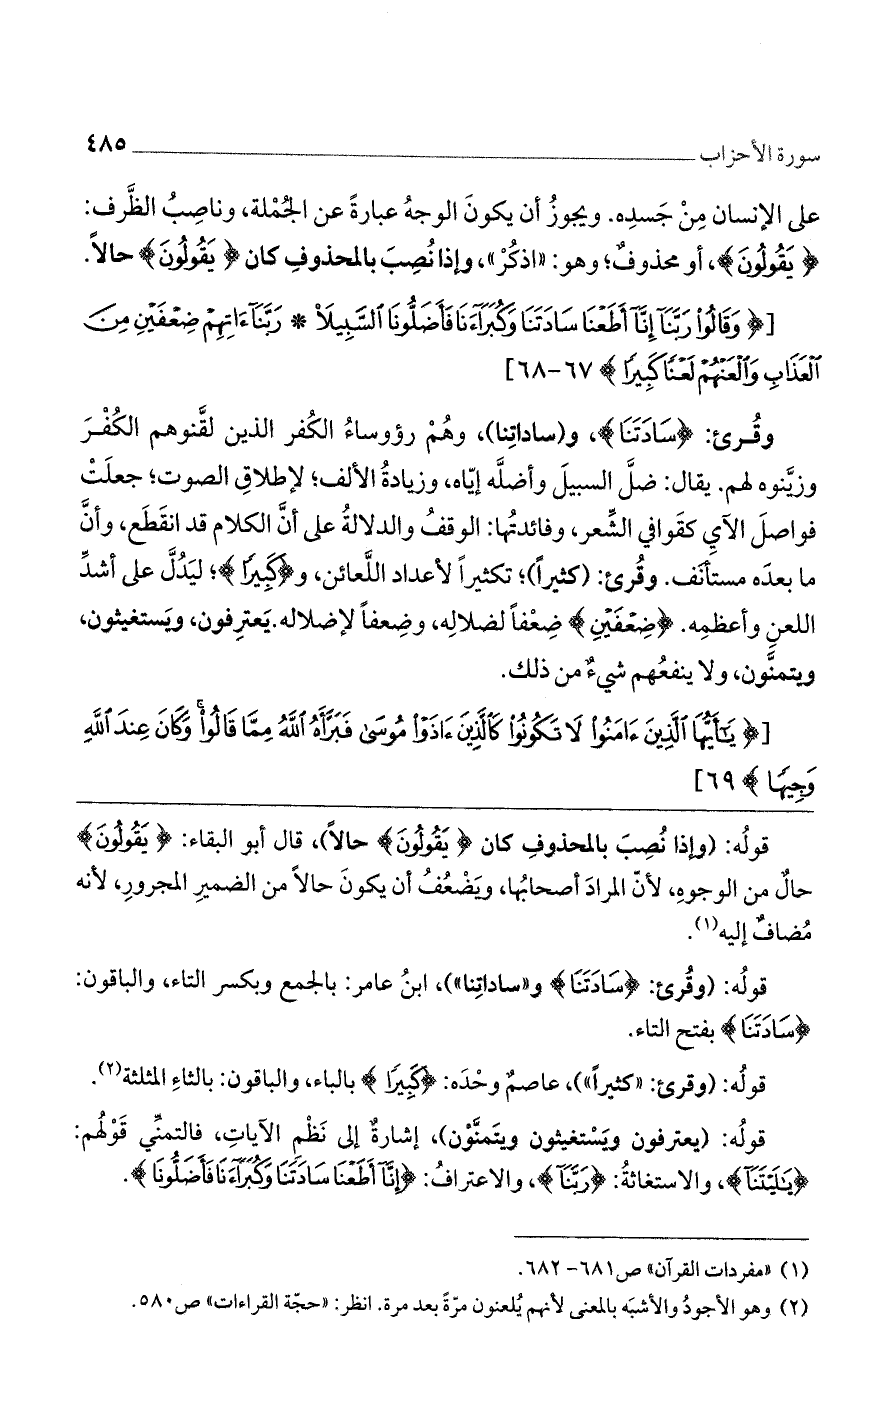 سورة الأحزاب ــــــــــــــــــــــــــــــــــــــ ٤٨٥
على الإنسان مِنْ جَسدِه. ويجوزُ أن يكونَ الوجهُ عبارةً عن الجُمْلة، وناصِبُ الظَّرف:
﴿يَقُولُونَ﴾، أو محذوفٌ؛ وهو: «اذكُرْ»، وإذا نُصِبَ بالمحذوفِ كان ﴿يَقُولُونَ﴾ حالاً.
[﴿وَقَالُواْ رَبَّنَآ إِنَّآ أَطَعْنَا سَادَتَنَا وَكُبَرَآءَنَا فَأَضَلُّونَا ٱلسَّبِيلَاْ * رَبَّنَآ ءَاتِهِمْ ضِعْفَيْنِ مِنَ
ٱلْعَذَابِ وَٱلْعَنْهُمْ لَعْنًا كَبِيرًا﴾ ٦٧-٦٨]
وقُــرئ: ﴿سَادَتَنَا﴾، و(ساداتِنا)، وهُمْ رؤوساءُ الكُفر الذين لقَّنوهم الكُفْرَ
وزيَّنوه لهم. يقال: ضلَّ السبيلَ وأضلَّه إيّاه، وزيادةُ الألف؛ لإطلاقِ الصوت؛ جعلَتْ
فواصلَ الآيِ كقَوافي الشِّعر، وفائدتُها: الوقفُ والدلالةُ على أنَّ الكلام قد انقَطَع، وأنَّ
ما بعدَه مستأنَف. وقُرئ: (كثيراً)؛ تكثيراً لأعداد اللَّعائن، و﴿كَبِيرًا﴾؛ ليَدُلَّ على أشدِّ
اللعنِ وأعظمِه. ﴿ضِعْفَيْنِ﴾ ضِعْفاً لضلالِه، وضِعفاً لإضلاله.يَعترِفون، ويَستغيثون،
ويتمنَّون، ولا ينفعُهم شيءٌ من ذلك.
[﴿يَـٰٓأَيُّهَا ٱلَّذِينَ ءَامَنُواْ لَا تَكُونُواْ كَٱلَّذِينَ ءَاذَوْاْ مُوسَىٰ فَبَرَّأَهُ ٱللَّهُ مِمَّا قَالُواْ ۚ وَكَانَ عِندَ ٱللَّهِ
وَجِيهًا﴾ ٦٩]
قولُه: (وإذا نُصِبَ بالمحذوفِ كان ﴿يَقُولُونَ﴾ حالاً)، قال أبو البقاء: ﴿يَقُولُونَ﴾
حالٌ من الوجوهِ، لأنّ المرادَ أصحابُها، ويَضْعُفُ أن يكونَ حالاً من الضميرِ المجرورِ، لأنه
مُضافٌ إليه(١).
قولُه: (وقُرئ: ﴿سَادَتَنَا﴾ و«ساداتِنا»)، ابنُ عامر: بالجمع وبكسر التاء، والباقون:
﴿سَادَتَنَا﴾ بفتح التاء.
قولُه: (وقرئ: «كثيراً»)، عاصمٌ وحْدَه: ﴿كَبِيرًا﴾ بالباء، والباقون: بالثاءِ المثلثة(٢).
قولُه: (يعترفون ويَسْتغيثون ويتَمنَّوْن)، إشارةٌ إلى نَظْمِ الآياتِ، فالتمنِّي قَوْلُهم:
﴿يَـٰلَيْتَنَآ﴾، والاستغاثةُ: ﴿رَبَّنَآ﴾، والاعترافُ: ﴿إِنَّآ أَطَعْنَا سَادَتَنَا وَكُبَرَآءَنَا فَأَضَلُّونَا﴾.
(١) «مفردات القرآن» ص٦٨١- ٦٨٢.
(٢) وهو الأجودُ والأشبَه بالمعنى لأنهم يُلعنون مرّةً بعد مرة. انظر: «حجّة القراءات» ص٥٨٠.